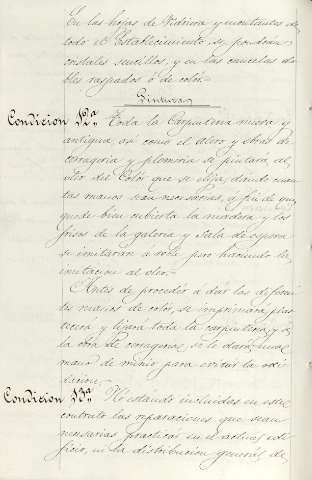 En las hojas de Vidriera y montantes de
todo el Establecimiento se pondrán
cristales sencillos, y en las cancelas do
bles raspados ó de color.
Pintura
Condicion 12ª Toda la Carpinteria nueva y
antigua, asi como el Olero y obras de
cerragería y plomeria se pintará al
olio del Color que se elija, dando cuan
tas manos sean necesarias, a fin de que
quede bien cubierta la madera y los
frisos de la galeria y Sala de espera
se imitarán a roble pero haciendo la
imitacion al oleo.
Antes de proceder a dar las diferen
tes manos de color, se imprimará, plas
tecerá y lijará toda la carpinteria, y á
la obra de cerrageria, se le dará una
mano de minio para evitar la oxi
dacion.
Condicion 13ª No estando incluidas en este
contrato las reparaciones que sean
necesarias practicar en el actual edi
ficio, en la distribucion general de